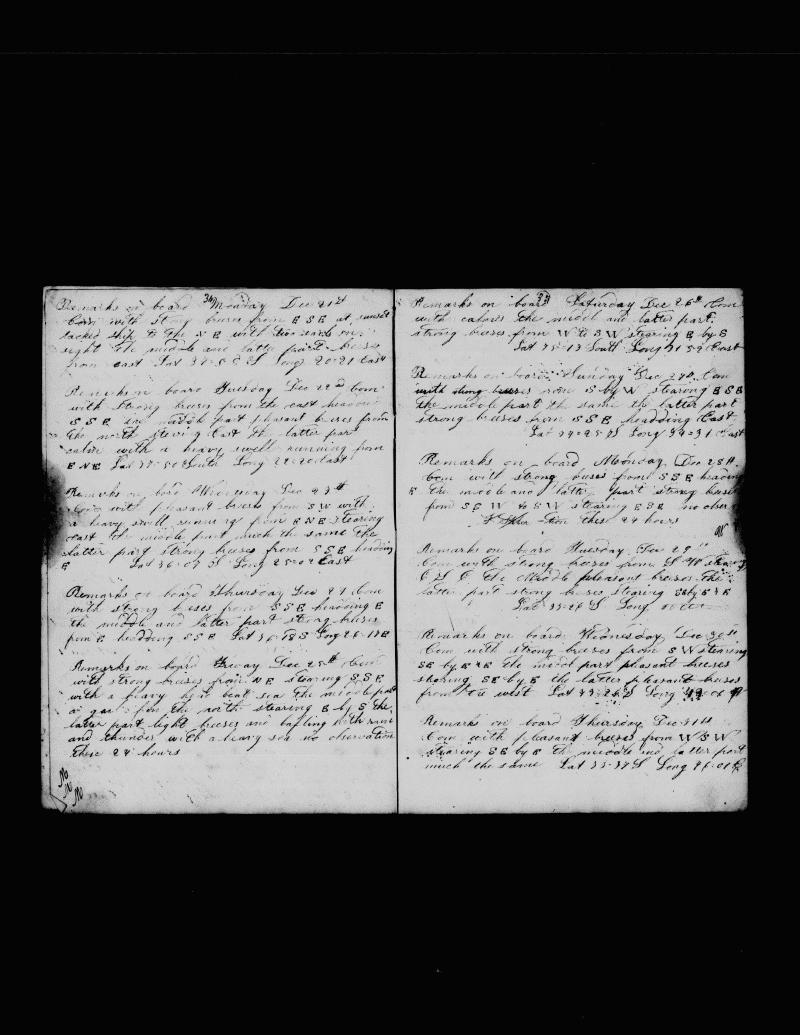 36
Remarks on board Monday Dec 21st
Com with strong breses from E S E at sunset
tacked ship to the N E with two sails in
sight the middle and latter part breses
from east Lat 37-50 S Long 20-21 East
Remarks on board Tuesday Dec 22d Com
with strong breses from the east heading
S S E the middle part pleasant breses from
the north steering East the latter part
calm with a heavy swell running from
E N E Lat 37-50 South Long 22-20 East
Remarks on bord Wednesday Dec 23th
Com with pleasant breses from S W with
a heavy swell running from E N E stearing
east the middle part much the same the
latter part strong breses from S S E heading
E Lat 36-07 S Long 25-02 East
Remarks on board Thursday Dec 24 Com
with strong breses from S S E heading E
the middle and latter part strong breses
from E heading S S E Lat 36 S Long 26-17 E
Remarks on board Friday Dec 25th Com
with strong breses from N E stearing S S E
with a heavy beat sea the middle part
a gale from the north stearing E by S the
latter part light breeses and bafling with rain
and thunder with a heavy sea no observation
these 24 hours
37
Remarks on board Saturday Dec 26th Com
with calms the middle and latter part
strong breses from W to S W stearing E by S
Lat 35-13 South Long 31-59 East
Remarks on board Sunday Dec 27th Com
with strong breses from S by W stearing E S E
the middle part the same the latter part
strong breses from S S E heading East
Lat 34-25 S Long 34-31 East
Remarks on board Monday Dec 28th
Com with strong breses from S S E heading
E the middle and latter part strong breses
from S E W to S W stearing E S E no obser
tion thes 24 hours
Remarks on board Tuesday Dec 29th
Com with strong breses from S W stearing
E S E the Middle pleasant breses the
latter part strong breses stearing SE by E & E
Lat 33-26 S Long
Remarks on board Wednesday Dec 30th
Com with strong breses from S W stearing
SE by E & E the midel part pleasant breeses
stearing SE by E the latter pleasant breses
from the west Lat 33-26 S Long
Remarks on board Thursday Dec 31st
Com with pleasant breses from W S W
stearing SE by E the middle and latter part
much the same Lat 33-37 S Long 46-01 E